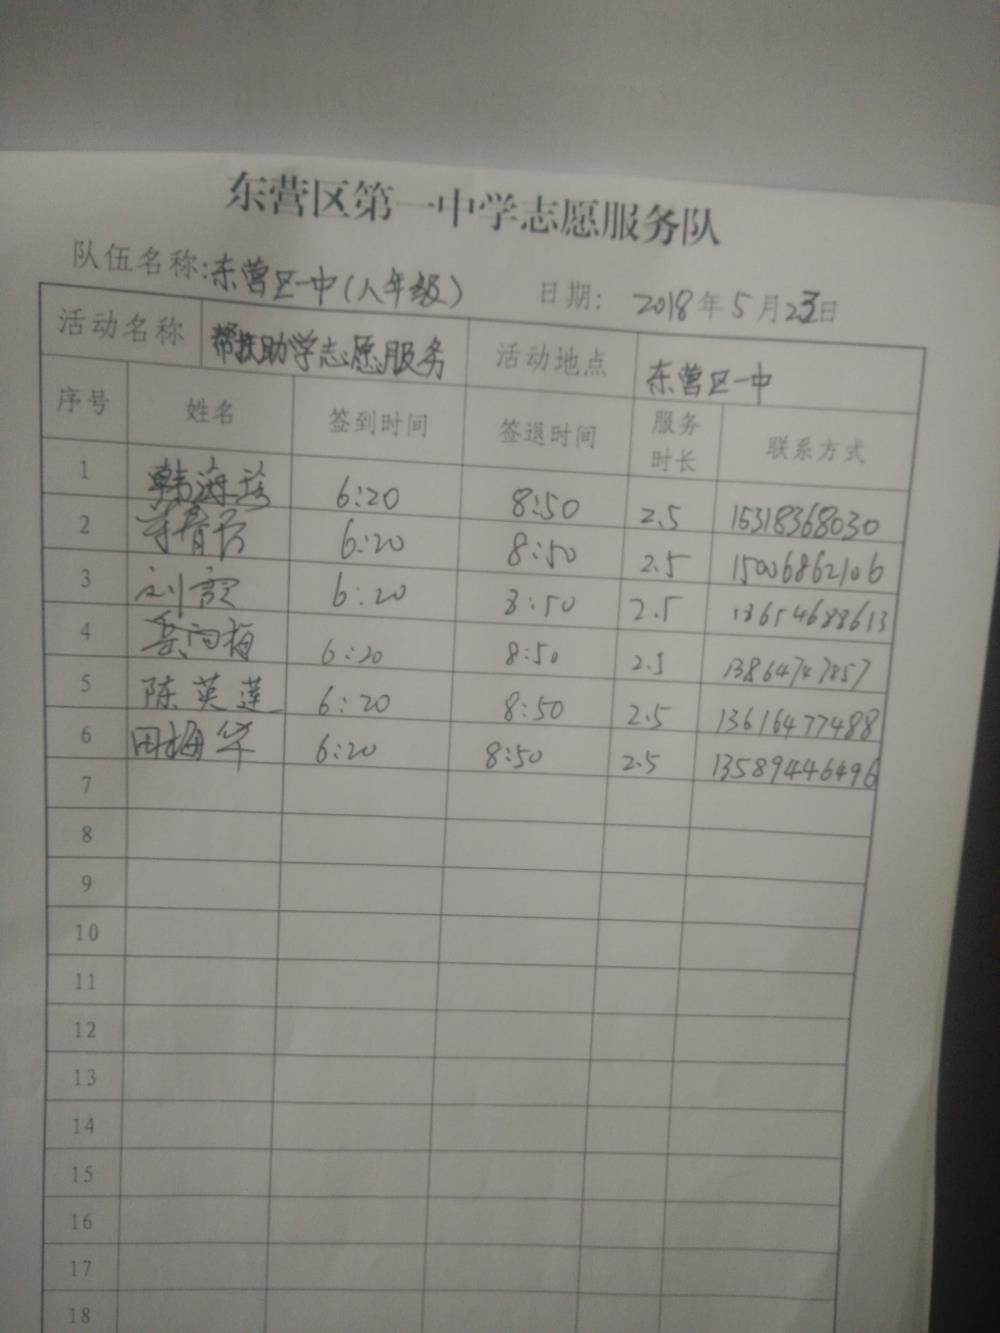 东营区第一中学志愿服务队
队伍名称:东营区一中(八年级) 日期: 2018年5月23日
活动名称 帮扶助学志愿服务 活动地点 东营区一中
序号 姓名 签到时间 签退时间 服务时长 联系方式
1 韩海 6:20 8:50 2.5 15318368030
2 6:20 8:50 2.5 15006862106
3 刘 6:20 8:50 2.5 13654688613
4 岳向梅 6:20 8:50 2.5 13864747857
5 陈英莲 6:20 8:50 2.5 13616477488
6 田梅华 6:20 8:50 2.5 13589446496
7
8
9
10
11
12
13
14
15
16
17
18